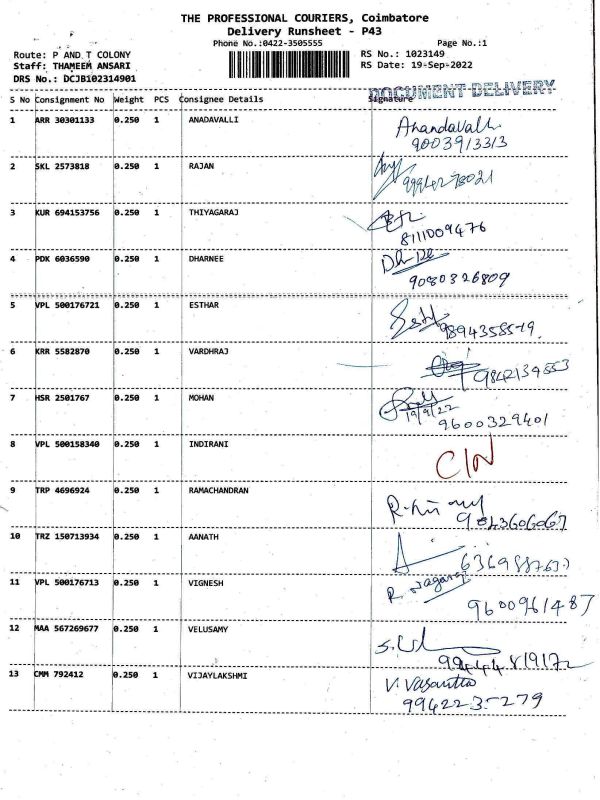 THE PROFESSIONAL COURIERS, Coimbatore
Delivery Runsheet - P43
Phone No.:0422-3505555 Page No.:1
Route: P AND T COLONY RS No.: 1023149
Staff: THAMEEM ANSARI RS Date: 19-Sep-2022
DRS No.: DCJB102314901
DOCUMENT DELIVERY
S No Consignment No Weight PCS Consignee Details Signature
1 ARR 30301133 0.250 1 ANADAVALLI Anandavalli
9003913313
2 SKL 2573818 0.250 1 RAJAN
9994278021
3 KUR 694153756 0.250 1 THIYAGARAJ
8111009476
4 PDK 6036590 0.250 1 DHARNEE
9080326809
5 VPL 500176721 0.250 1 ESTHAR
9894358519
6 KRR 5582870 0.250 1 VARDHRAJ
9842139553
7 HSR 2501767 0.250 1 MOHAN
19/9/22
9600329401
8 VPL 500158340 0.250 1 INDIRANI C/N
9 TRP 4696924 0.250 1 RAMACHANDRAN
10 TRZ 150713934 0.250 1 AANATH
11 VPL 500176713 0.250 1 VIGNESH R. Nagaraj
9600961487
12 MAA 567269677 0.250 1 VELUSAMY
13 CMM 792412 0.250 1 VIJAYLAKSHMI V. Vasantha
9942235279